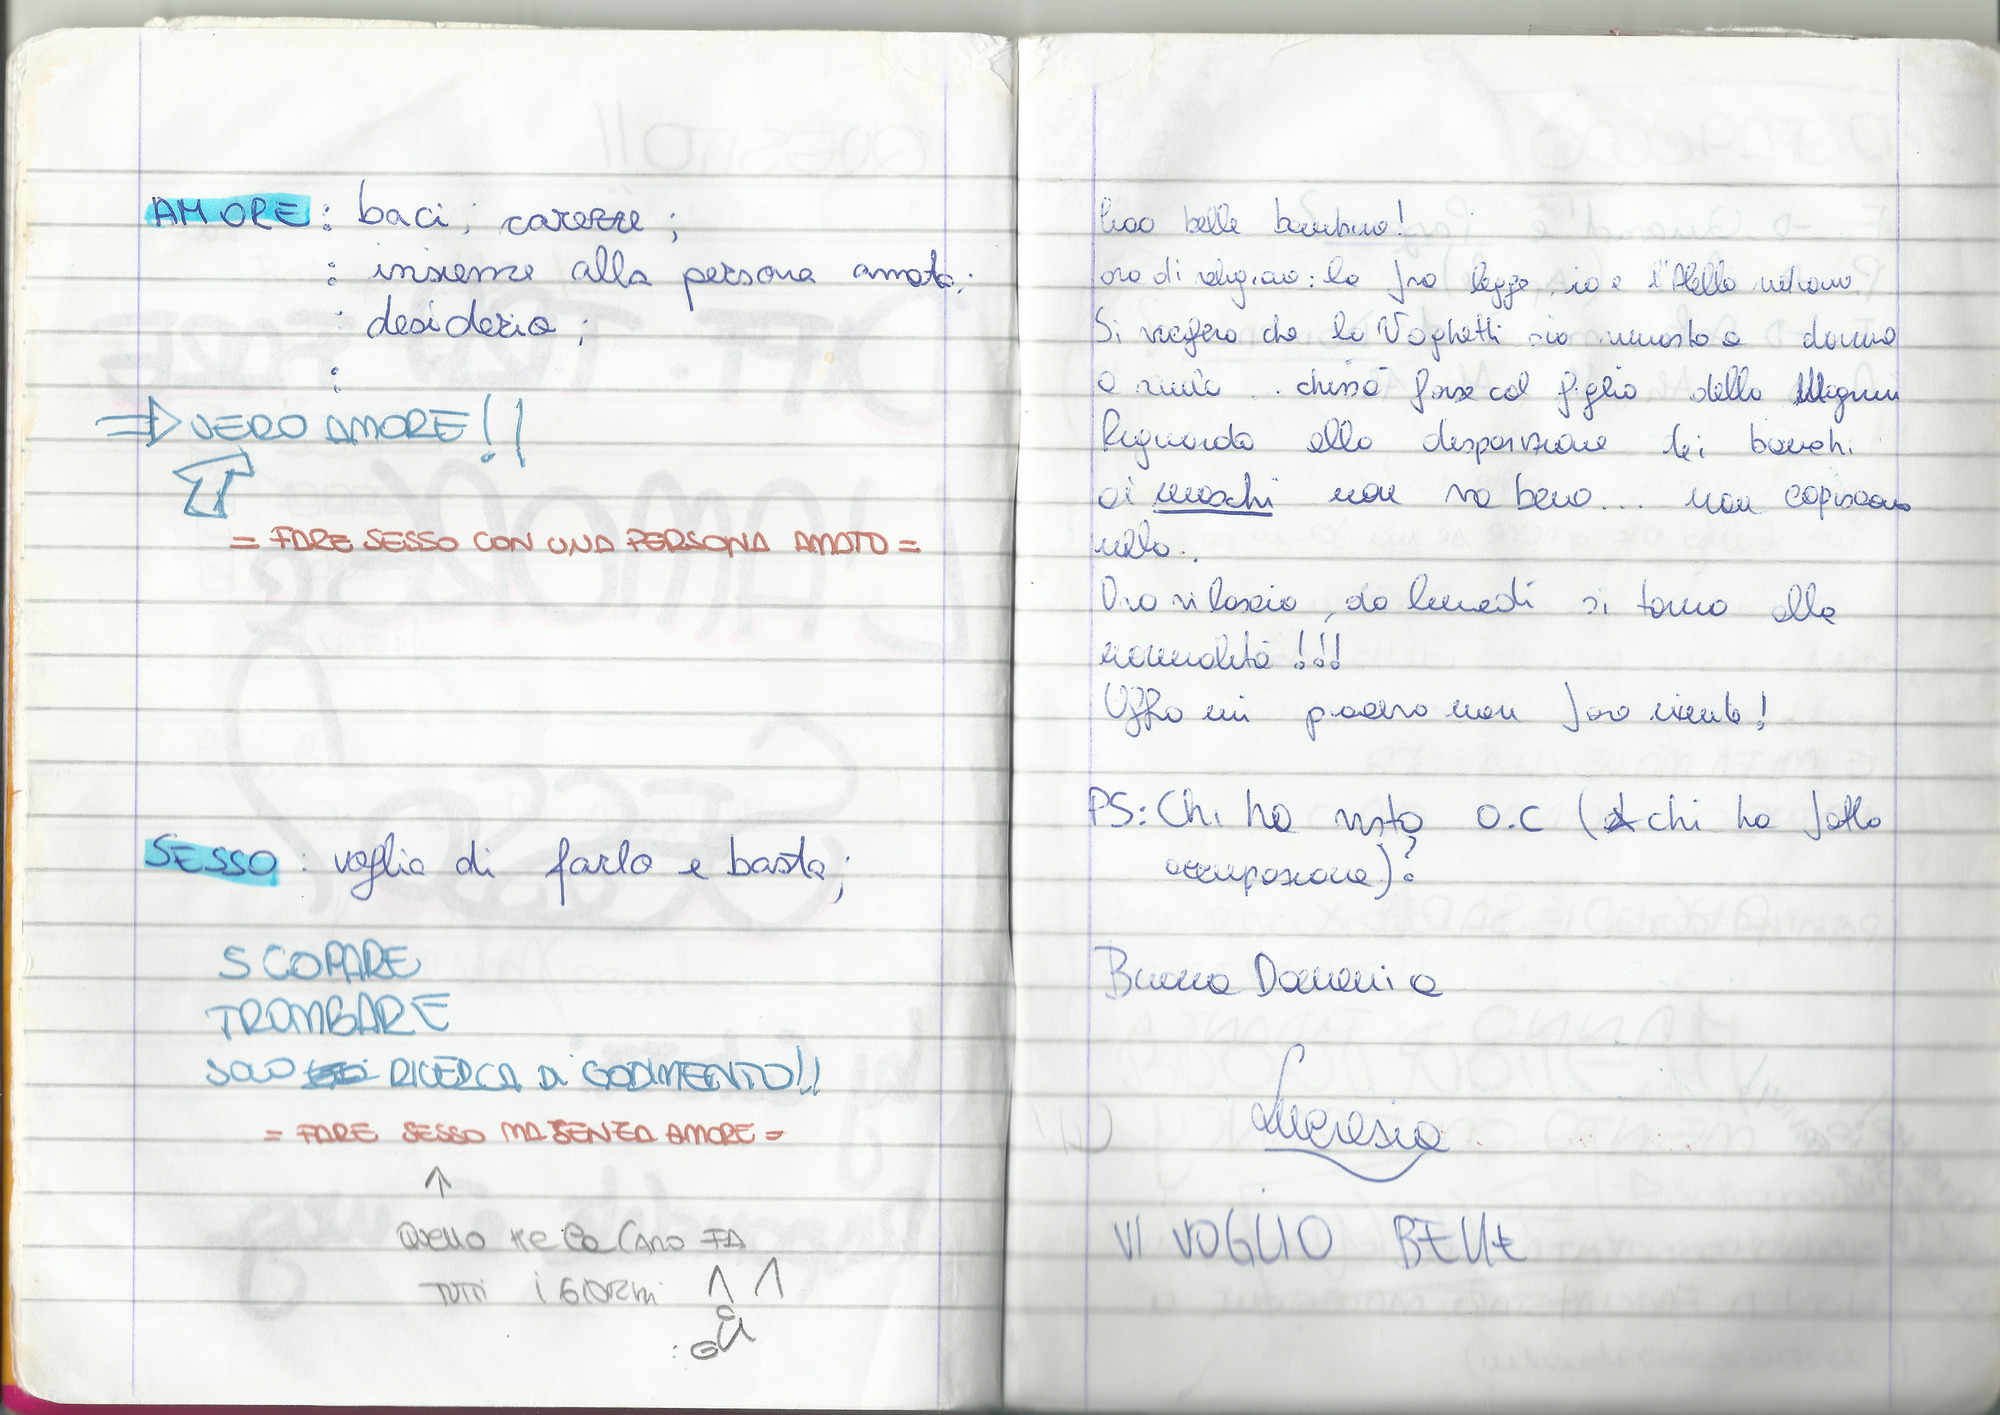 AMORE: baci; carezze;
: insieme alla persona amata;
: desiderio;
:
⇒ VERO AMORE!!
= FARE SESSO CON UNA PERSONA AMATO =
SESSO: voglia di farlo e basta;
SCOPARE
TROMBARE
SOLO RICERCA DI GODIMENTO!!
= FARE SESSO MA SENZA AMORE =
↑
QUELLO KE LA CANO FA
TUTTI I GIORNI
ciao belle bambine!
ora di religione: la fra legge, io e l'Abello
Si vocifera che la Voghetti sia rimasta a
chissà forse col figlio della
Riguardo alla disparizione dei banchi
ai maschi non va bene... non capiscono
nulla..
Ora vi lascio, da lunedì si torna alla
normalità!!!
Uffa mi piaceva non fare niente!
PS: Chi ha visto O.C (chi ha fatto
occupazione)?
Buona Domenica
Lucrezia
VI VOGLIO BENE